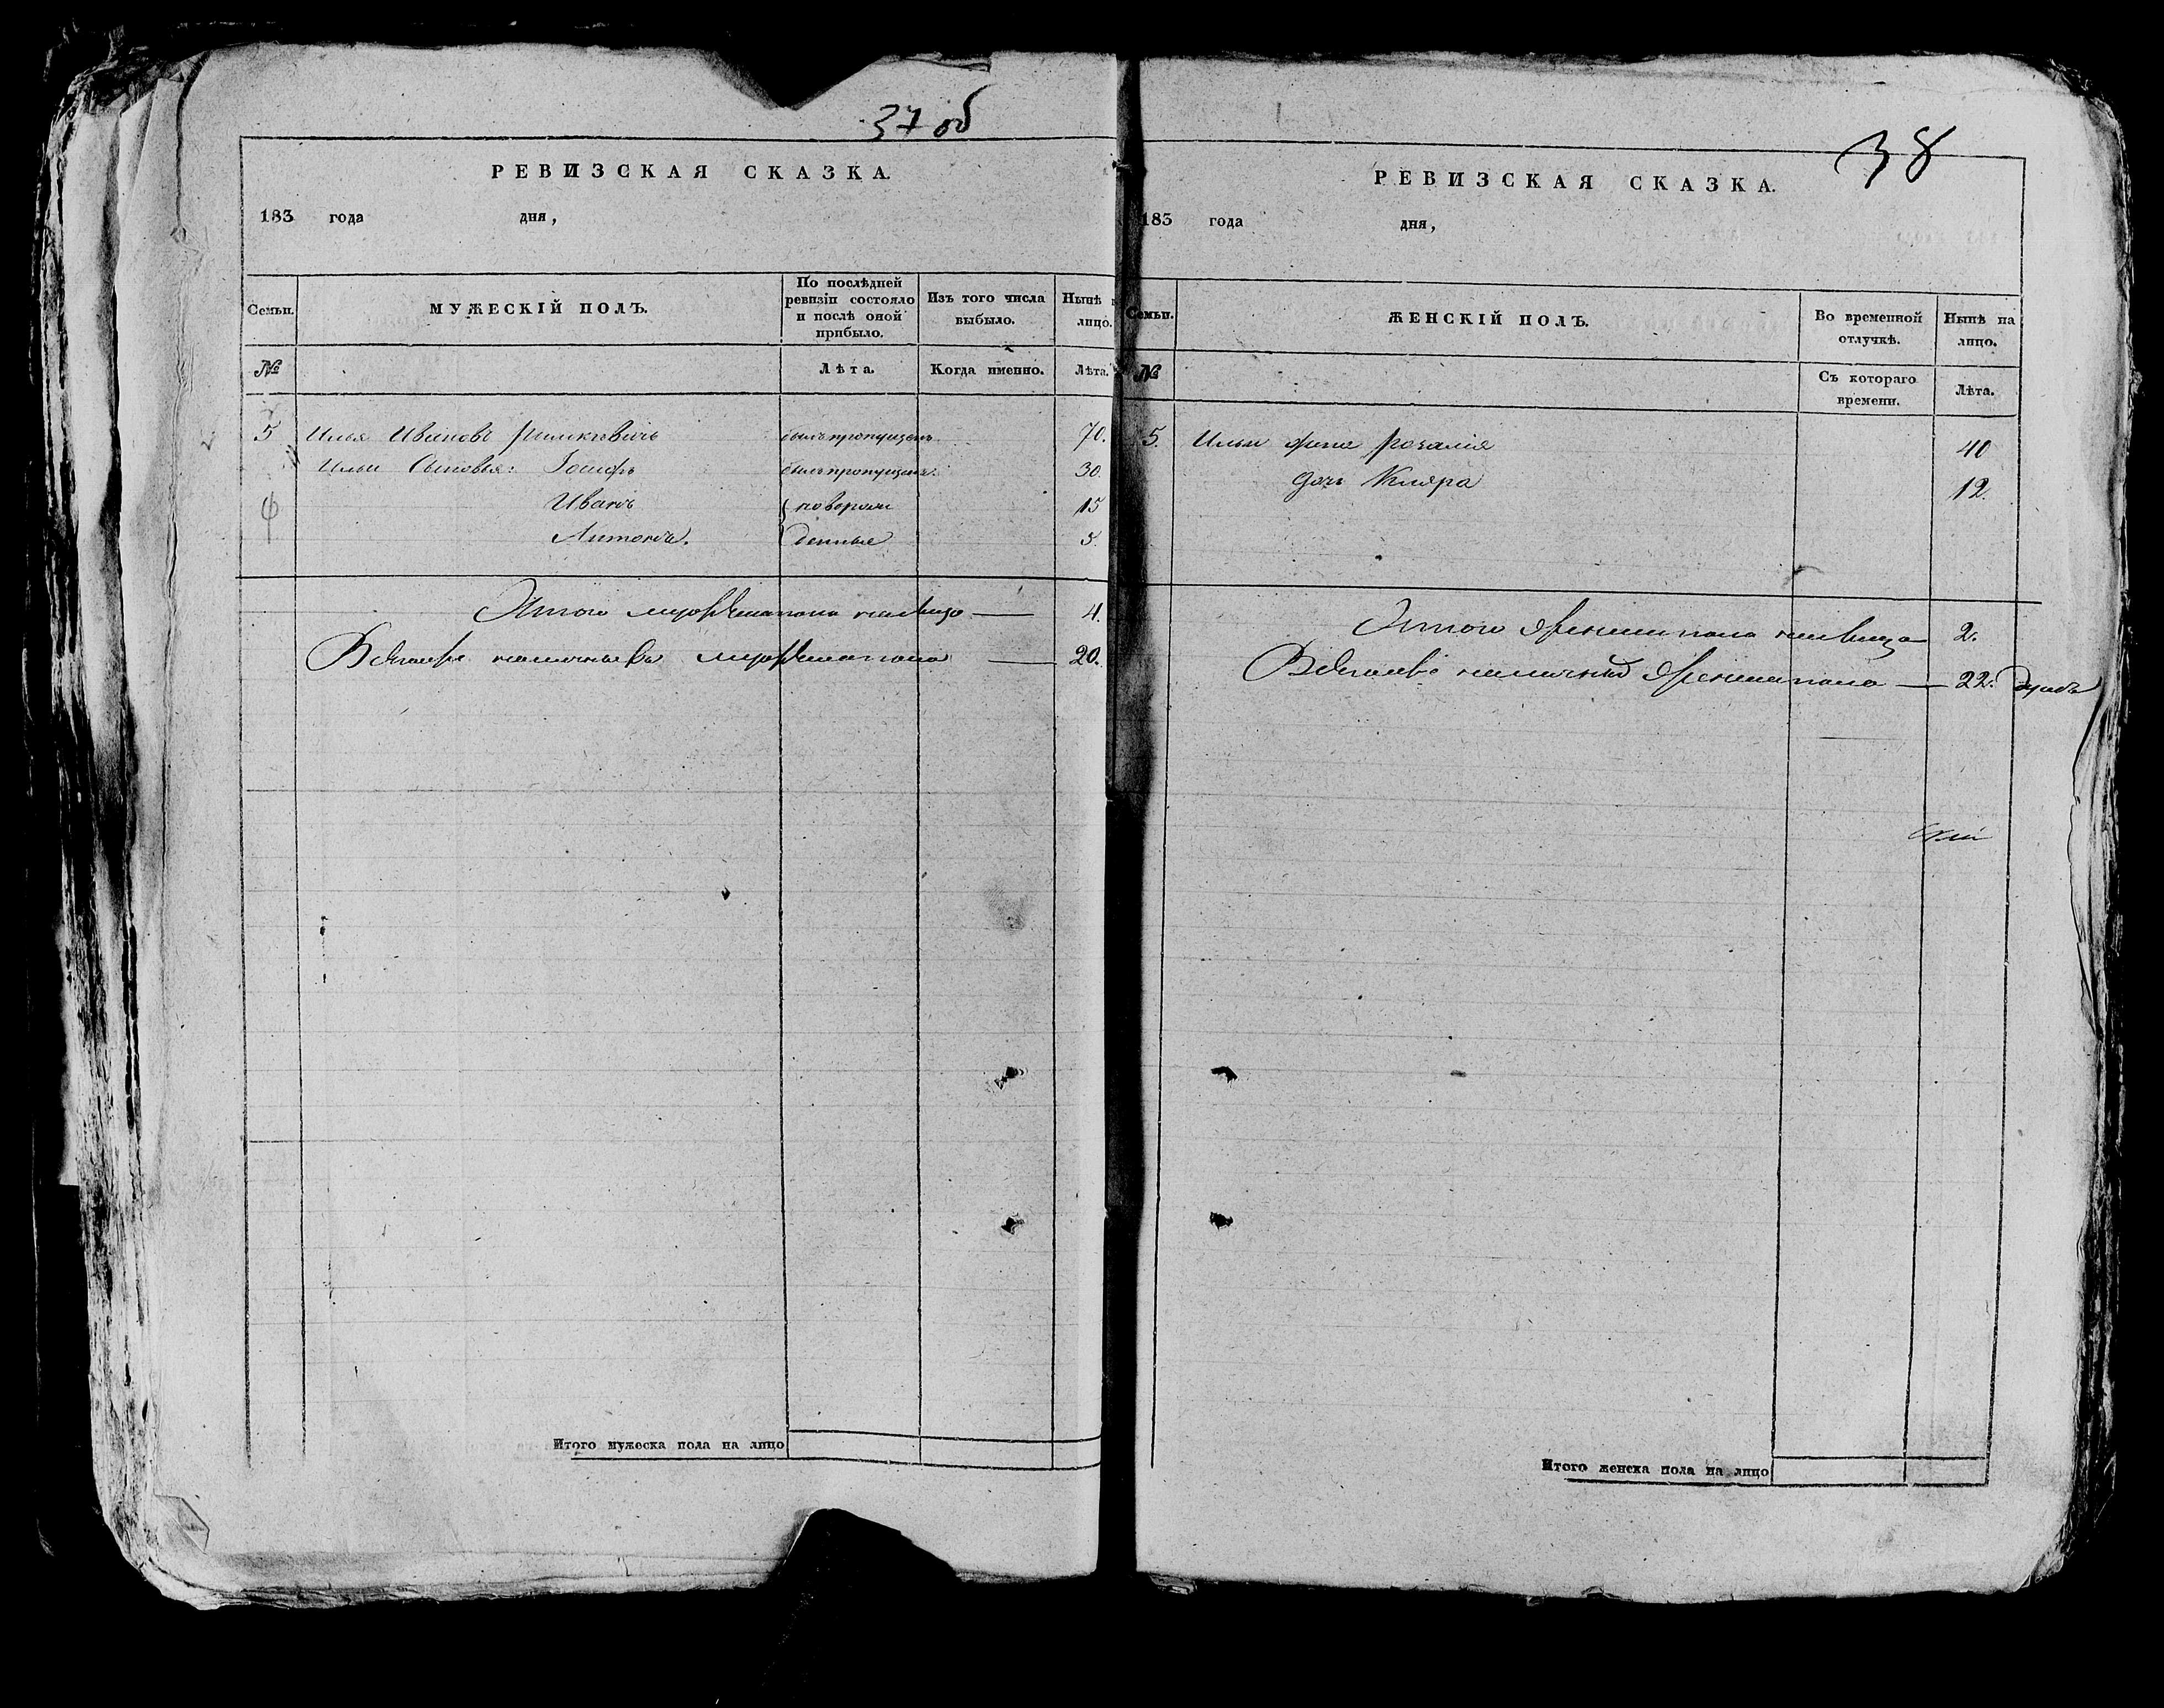 37 об
РЕВИЗСКАЯ СКАЗКА.
183 года дня,
Семьи.
МУЖЕСКІЙ ПОЛЪ.
По послѣдней ревизіи состояло и послѣ оной прибыло.
Изъ того числа выбыло.
Нынѣ лицо.
№
Лѣта.
Когда именно.
Лѣта.
5 Илья Ивановъ былъ пропущенъ 70.
Ильи Сыновья: Іосифъ былъ пропущенъ. 30.
Иванъ новорож 15
Антонъ. денные 5.
Итого мужеска пола на лицо — 4.
наличныхъ мужеска пола — 20.
Итого мужеска пола на лицо
38
РЕВИЗСКАЯ СКАЗКА.
183 года дня,
Семьи.
ЖЕНСКІЙ ПОЛЪ.
Во временной отлучкѣ.
Нынѣ на лицо.
№
Съ котораго времени.
Лѣта.
5. Ильи жена Розалія 40
дочь Кляра 12.
Итого женска пола на лицо 2.
наличныхъ женска пола — 22. душъ
Итого женска пола на лицо